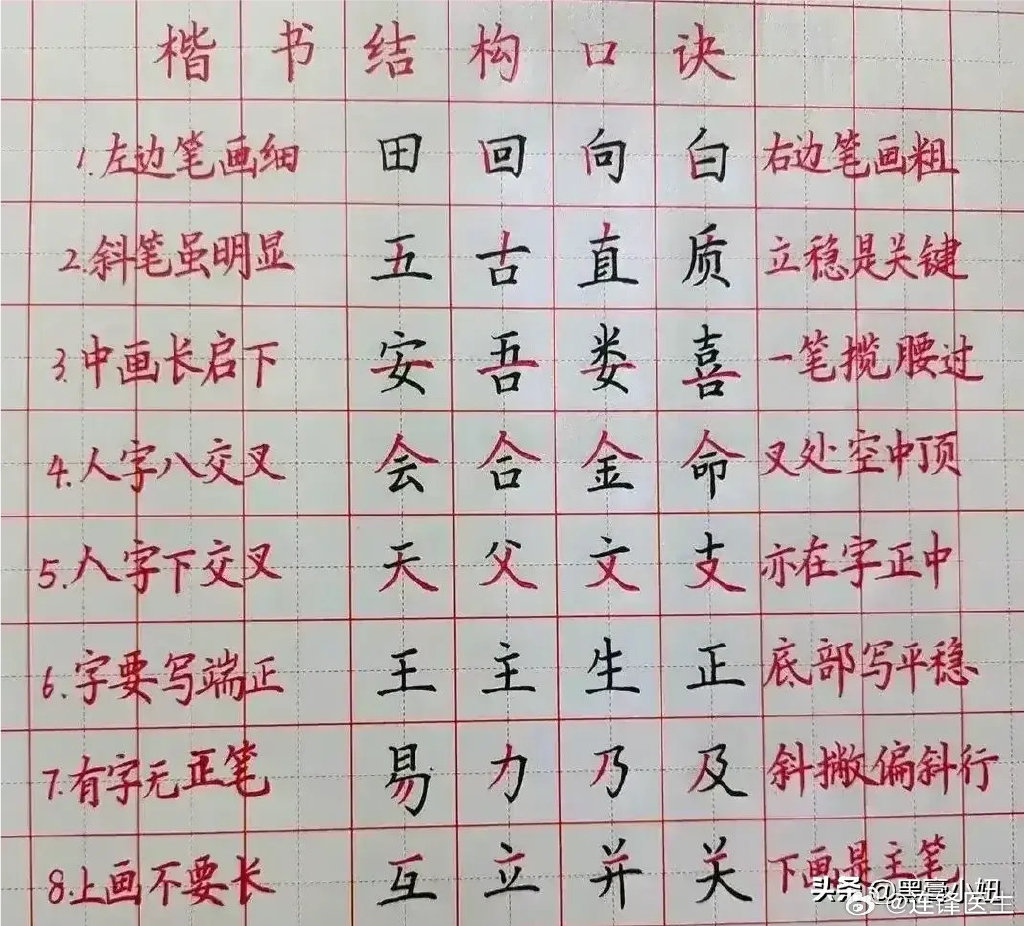 楷书结构口诀
1.左边笔画细 田 回 向 白 右边笔画粗
2.斜笔虽明显 五 古 直 质 立稳是关键
3.中画长启下 安 吾 娄 喜 一笔揽腰过
4.人字八交叉 会 合 金 命 叉处空中顶
5.人字下交叉 天 父 文 支 亦在字正中
6.字要写端正 王 主 生 正 底部写平稳
7.有字无正笔 易 力 乃 及 斜撇偏斜行
8.上画不要长 互 立 并 关 下画是主笔
头条 @黑膏小妞
@连锋医生